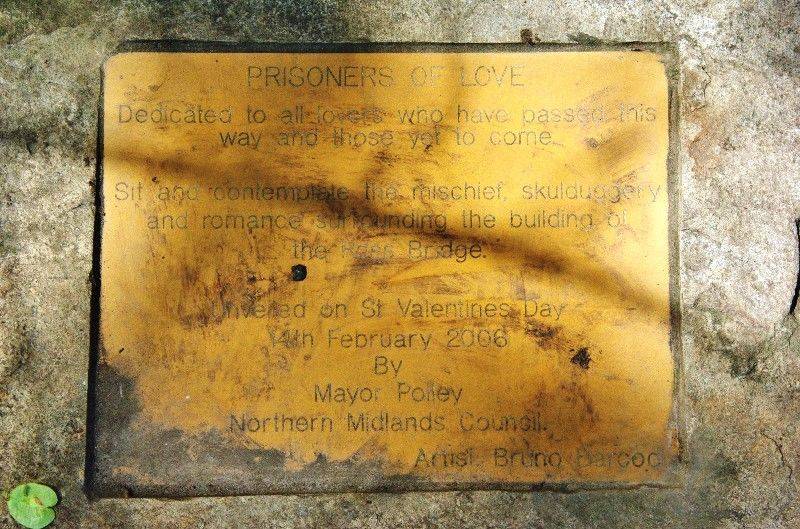 PRISONERS OF LOVE
Dedicated to all lovers who have passed this
way and those yet to come.
Sit and contemplate the mischief, skulduggery
and romance surrounding the building of
the Ross Bridge.
Unveiled on St Valentines Day
14th February 2006
By
Mayor Polley
Northern Midlands Council.
Artist Bruno